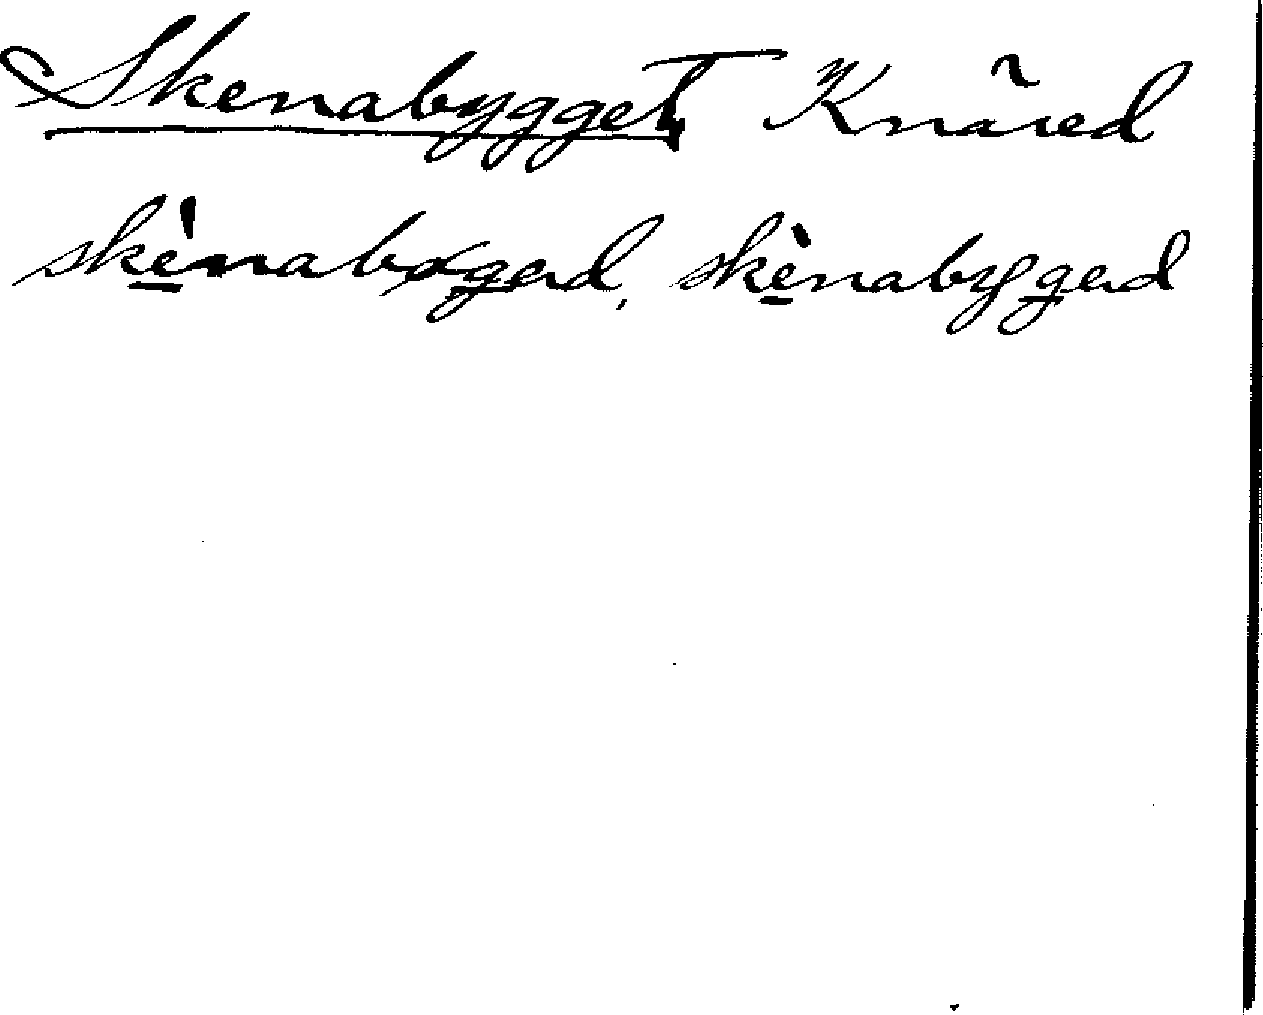 Skenabygget Knäred
skè̱nabøg̱ad, skè̱nabyg̱ad